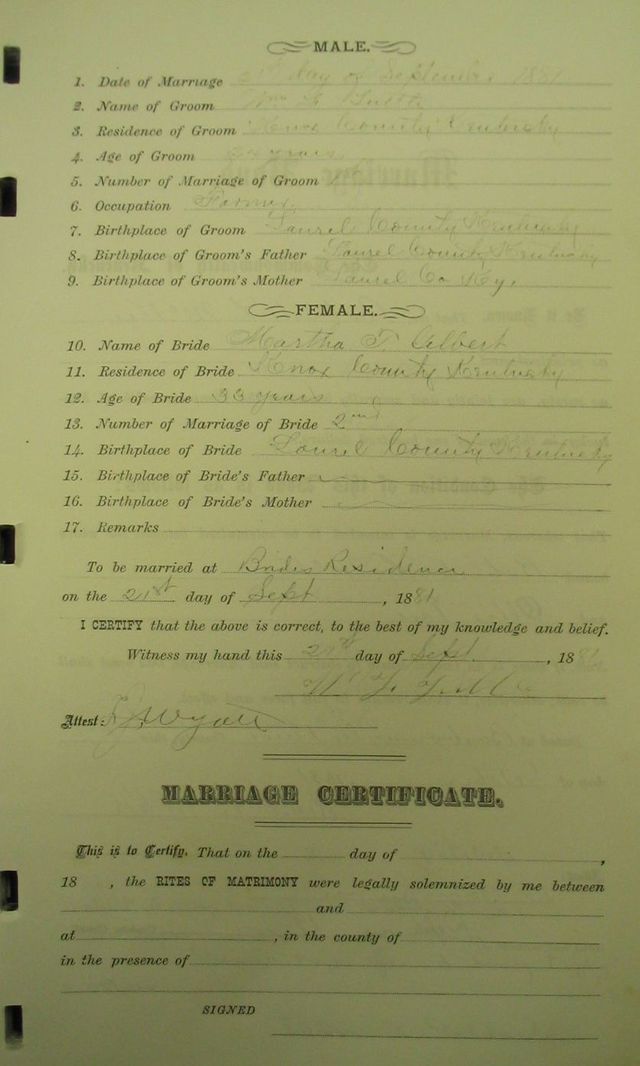 MALE.
1. Date of Marriage day of September 1881
2. Name of Groom Wm
3. Residence of Groom Knox County Kentucky
4. Age of Groom years
5. Number of Marriage of Groom
6. Occupation Farmer
7. Birthplace of Groom Laurel County Kentucky
8. Birthplace of Groom's Father Laurel County Kentucky
9. Birthplace of Groom's Mother Laurel Co Ky.
FEMALE.
10. Name of Bride Martha T. Albert
11. Residence of Bride Knox County Kentucky
12. Age of Bride 33 years
13. Number of Marriage of Bride 2nd
14. Birthplace of Bride Laurel County Kentucky
15. Birthplace of Bride's Father
16. Birthplace of Bride's Mother
17. Remarks
To be married at Brides Residence
on the 21st day of Sept, 1881
I CERTIFY that the above is correct, to the best of my knowledge and belief.
Witness my hand this day of Sept, 18
Attest: Wyatt
MARRIAGE CERTIFICATE.
This is to Certify, That on the day of ,
18 , the RITES OF MATRIMONY were legally solemnized by me between
and
at , in the county of
in the presence of
SIGNED